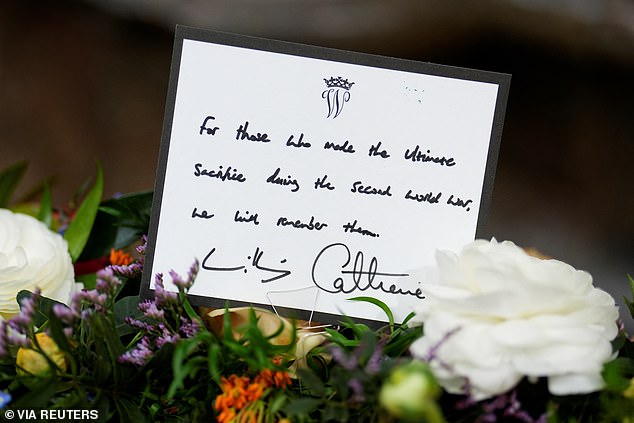 W
For those who made the ultimate
sacrifice during the second world war,
we will remember them.
William Catherine
© VIA REUTERS